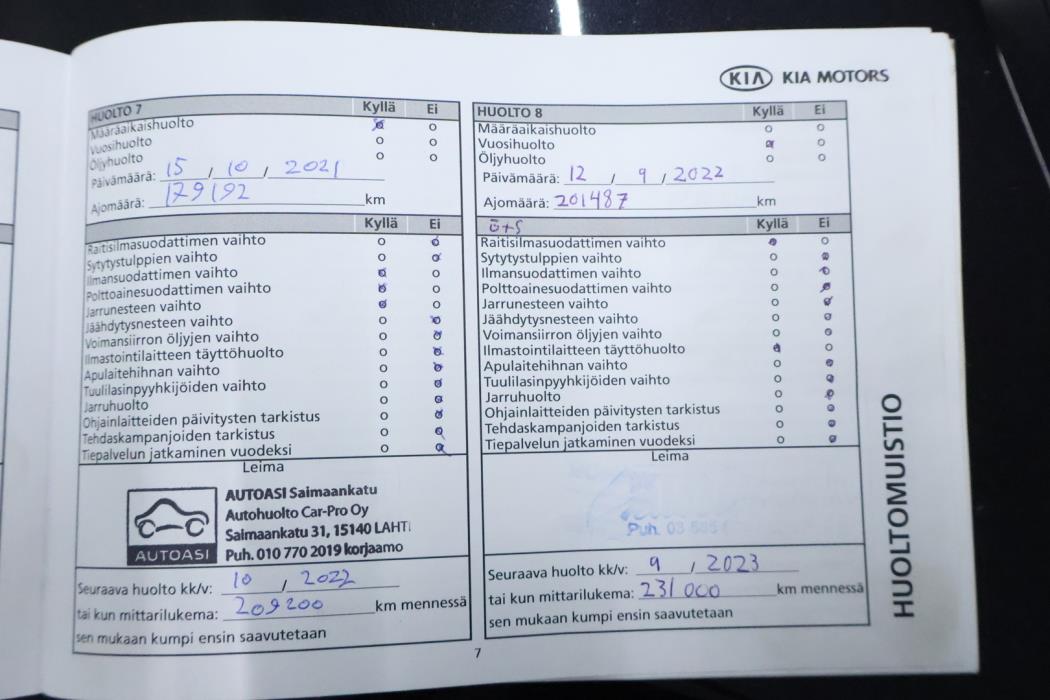 KIA KIA MOTORS
HUOLTO 7 Kyllä Ei
Määräaikaishuolto
Vuosihuolto
Öljyhuolto
Päivämäärä: 15 / 10 / 2021
Ajomäärä: 179192 km
Kyllä Ei
Raitisilmasuodattimen vaihto
Sytytystulppien vaihto
Ilmansuodattimen vaihto
Polttoainesuodattimen vaihto
Jarrunesteen vaihto
Jäähdytysnesteen vaihto
Voimansiirron öljyjen vaihto
Ilmastointilaitteen täyttöhuolto
Apulaitehihnan vaihto
Tuulilasinpyyhkijöiden vaihto
Jarruhuolto
Ohjainlaitteiden päivitysten tarkistus
Tehdaskampanjoiden tarkistus
Tiepalvelun jatkaminen vuodeksi
Leima
AUTOASI
AUTOASI Saimaankatu
Autohuolto Car-Pro Oy
Saimaankatu 31, 15140 LAHTI
Puh. 010 770 2019 korjaamo
Seuraava huolto kk/v: 10 / 2022
tai kun mittarilukema: 209200 km mennessä
sen mukaan kumpi ensin saavutetaan
HUOLTO 8 Kyllä Ei
Määräaikaishuolto
Vuosihuolto
Öljyhuolto
Päivämäärä: 12 / 9 / 2022
Ajomäärä: 201487 km
ö+s Kyllä Ei
Raitisilmasuodattimen vaihto
Sytytystulppien vaihto
Ilmansuodattimen vaihto
Polttoainesuodattimen vaihto
Jarrunesteen vaihto
Jäähdytysnesteen vaihto
Voimansiirron öljyjen vaihto
Ilmastointilaitteen täyttöhuolto
Apulaitehihnan vaihto
Tuulilasinpyyhkijöiden vaihto
Jarruhuolto
Ohjainlaitteiden päivitysten tarkistus
Tehdaskampanjoiden tarkistus
Tiepalvelun jatkaminen vuodeksi
Leima
Puh. 03
Seuraava huolto kk/v: 9 / 2023
tai kun mittarilukema: 231 000 km mennessä
sen mukaan kumpi ensin saavutetaan
HUOLTOMUISTIO
7